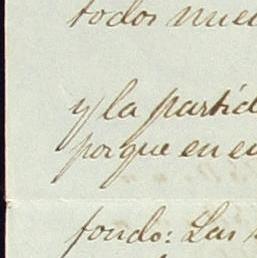 todos nue
y la partid
porque en e
fondo: Las